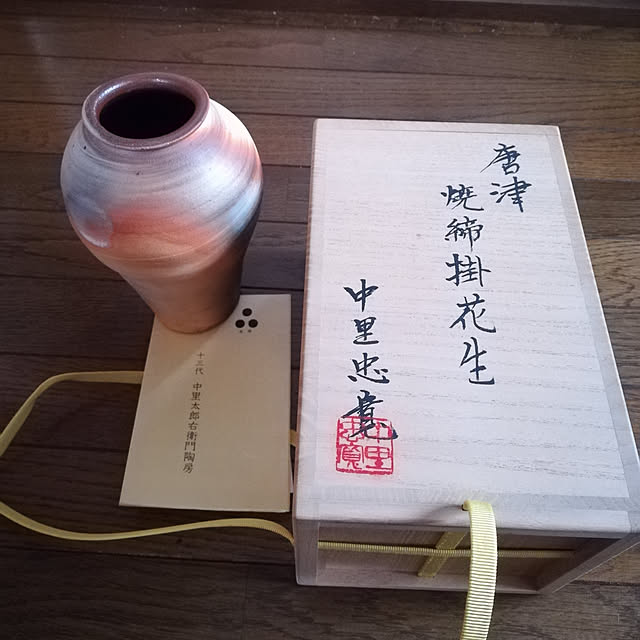 唐津
焼締掛花生
中里忠寛
中里忠寛
十三代 中里太郎右衛門陶房